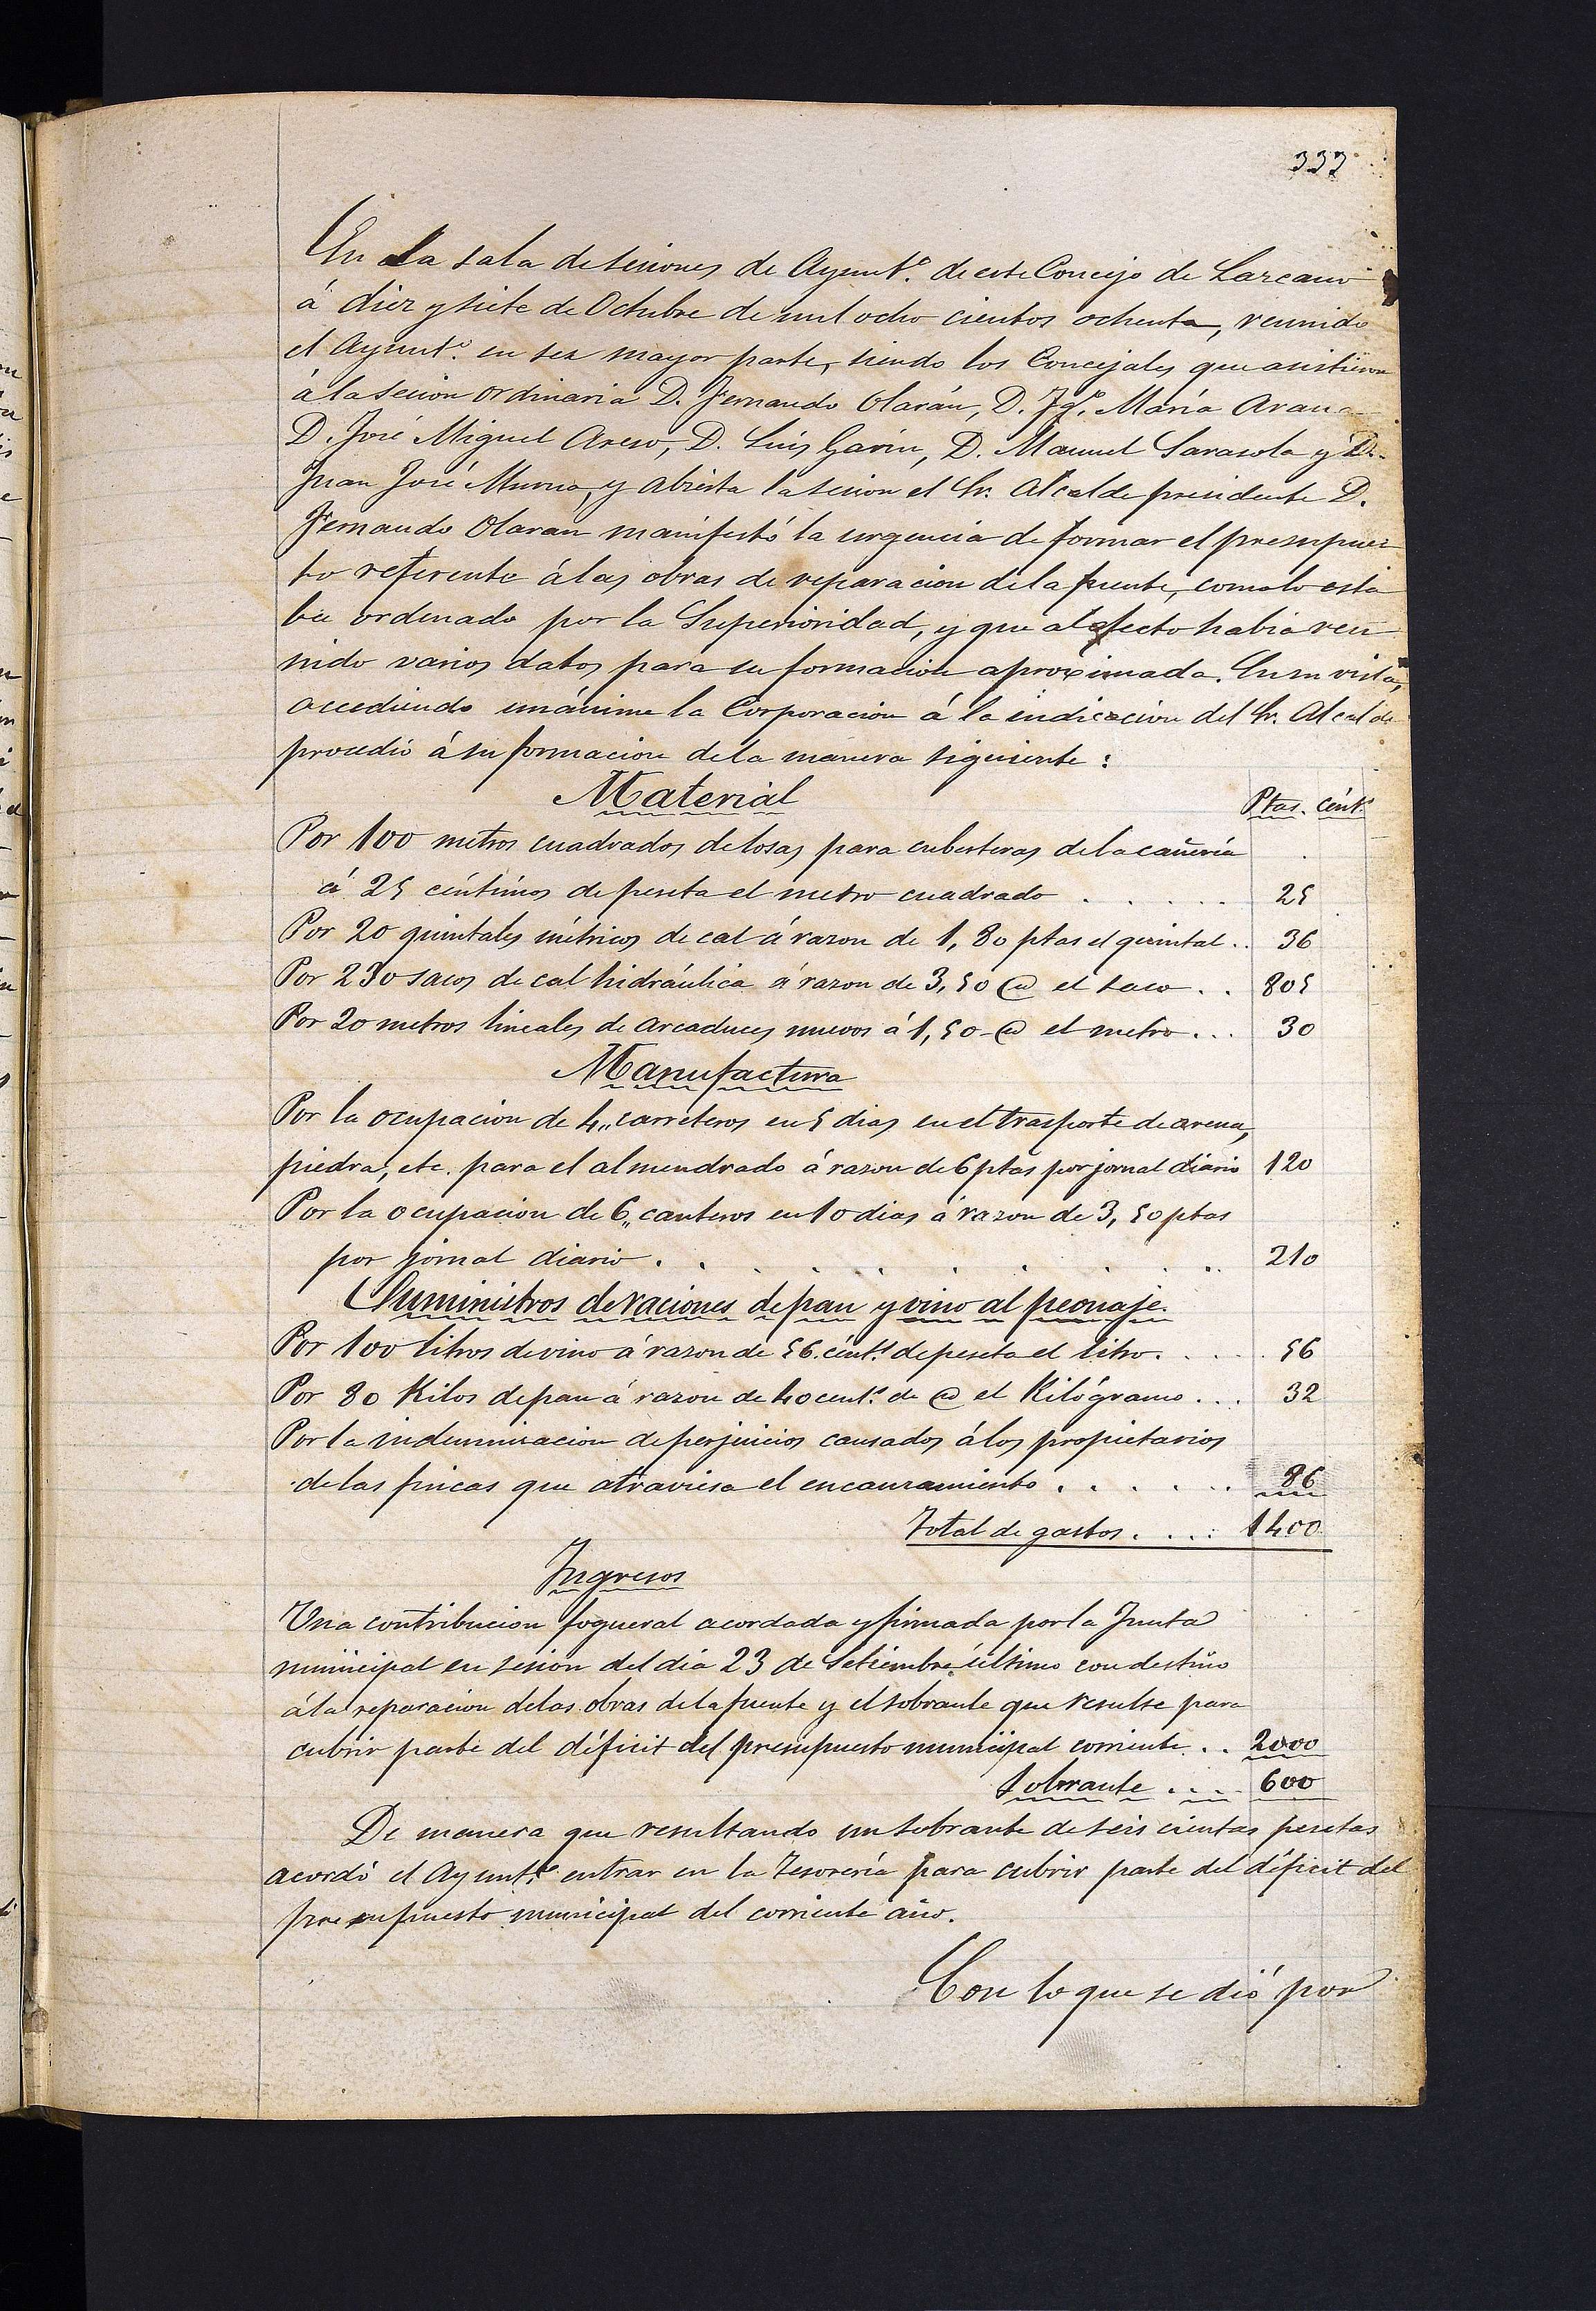 337
En la sala de sesiones de Ayunt.º de este Concejo de Lazcano
á diez y siete de Octubre de mil ocho cientos ochenta, reunido
el Ayunt.º en sez mayor parte, siendo los Concejales que asistieron
á la sesion ordinaria D. Fernando Olarán, D. Ygº. María Arana
D. José Miguel Areso, D. Luis Garin, D. Manuel Sarasola y D.
Juan José Murua, y abierta la sesion el Sr. Alcalde presidente D.
Fernando Olaran manifestó la urgencia de formar el presupues
to referente á las obras de reparacion de la fuente, como lo esta
ba ordenado por la Superioridad, y que al efecto habia reu
nido varios datos para su formacion aproximada. En su vista,
accediendo unánime la Corporacion á la indicacion del Sr. Alcalde
procedió á su formacion de la manera siguiente:
Material
Ptas. cént.s
Por 100 metros cuadrados de losas para cubiertas de la cañería
á 25 céntimos de peseta el metro cuadrado . . . . . 25
Por 20 quintales métricos de cal á razon de 1,80 ptas el quintal . . 36
Por 230 sacos de cal hidráulica á razon de 3,50 @ el saco . . 805
Por 20 metros lineales de arcaduces nuevos á 1,50 @ el metro . . . 30
Manufactura
Por la ocupacion de 4,, carreteros en 5 dias en el trasporte de arena,
piedra, etc. para el almendrado á razon de 6 ptas por jornal diario 120
Por la ocupacion de 6,, canteros en 10 dias á razon de 3,50 ptas
por jornal diario . . . . . . . . 210
Suministros de raciones de pan y vino al peonaje.
Por 100 litros de vino á razon de 56 cént.s de peseta el litro . . . 56
Por 80 Kilos de pan á razon de 40 cent.s de @ el Kilógramo . . . 32
Por la indemnizacion de perjuicios causados á los propietarios
de las fincas que atraviesa el encauzamiento . . . . . . 86
Total de gastos . . . : 1400
Ingresos
Una contribucion fogueral acordada y firmada por la Junta
municipal en sesion del dia 23 de Setiembre último con destino
á la reparacion de las obras de la fuente y el sobrante que resulte para
cubrir parte del déficit del presupuesto municipal corriente . . 2000
Sobrante . . . . 600
De manera que resultando un sobrante de seis cientas pesetas
acordó el Ayunt.º entrar en la Tesorería para cubrir parte del déficit del
presupuesto municipal del corriente año.
Con lo que se dió por